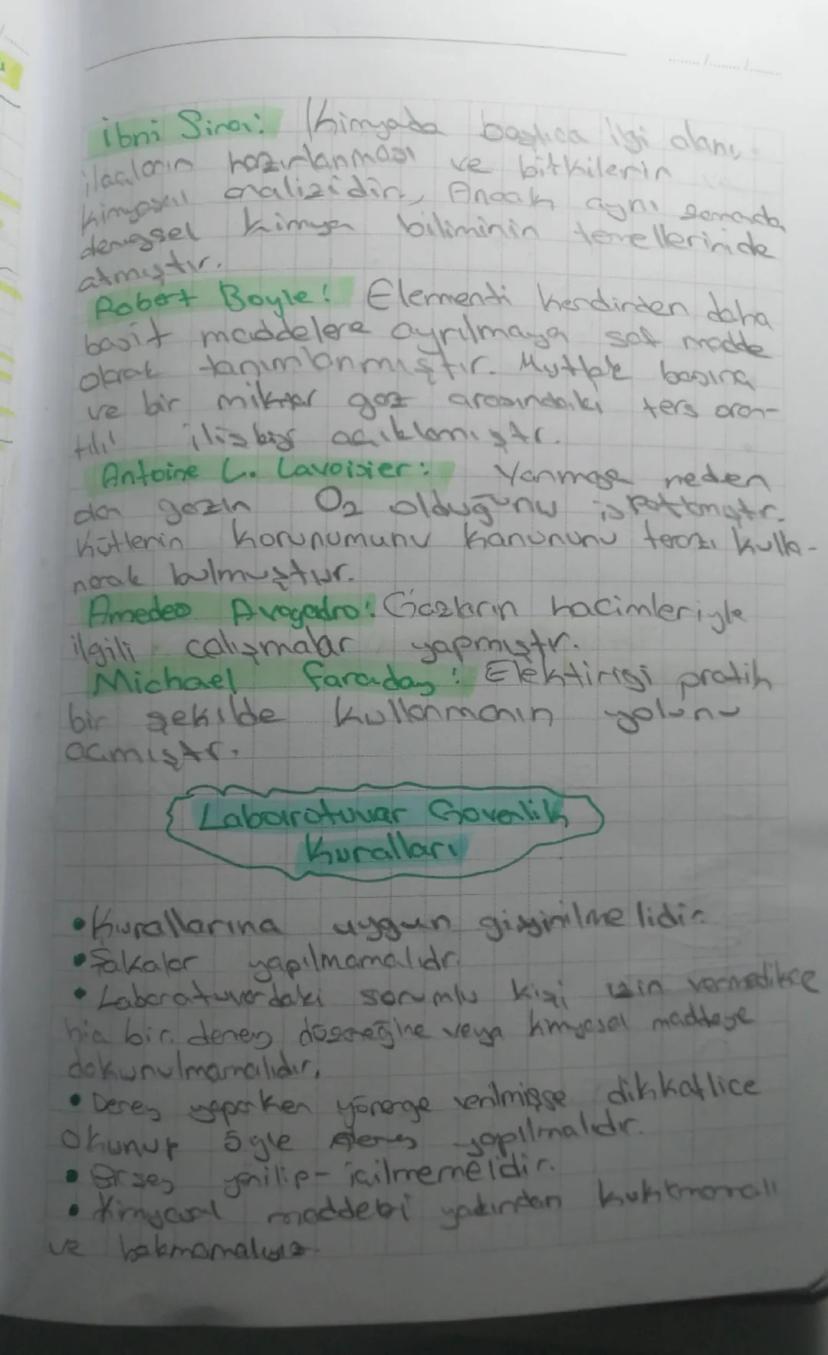 İbni Sina: Kimyada başlıca ilgi alanı
ilaçların hazırlanması ve bitkilerin
kimyasal analizidir, Ancak aynı zamanda
deneysel kimya biliminin temellerinide
atmıştır.
Robert Boyle: Elementi kendinden daha
basit maddelere ayrılmayan saf madde
olarak tanımlanmıştır. Mutlak basına
ve bir miktar gaz arasındaki ters oran-
tılı açıklamıştr.
Antoine L. Lavoisier: Yanmaya neden
olan gazın O2 olduğunu ispatlamıştr.
Kütlerin korunumunu kanununu terazi kulla-
narak bulmuştur.
Amedeo Avogadro: Gazların hacimleriyle
ilgili çalışmalar yapmıştr.
Michael Faraday: Elektirigi pratik
bir şekilde kullanmanın yolunu
açmıştr.
Laboratuvar Güvenlik
Kuralları
• Kurallarına uygun giyinilmelidir
• Şakalar yapılmamalıdr
• Laboratuvardaki sorumlu kişi izin vermedikçe
hiç bir deney düzeneğine veya kimyasal maddeye
dokunulmamalıdır.
• Deney yaparken yönerge verilmişse dikkatlice
Okunur öyle deney yapılmalıdr.
• yenilip-içilmemelidir.
• Kimyasal yakından
ve bakmamalıyız